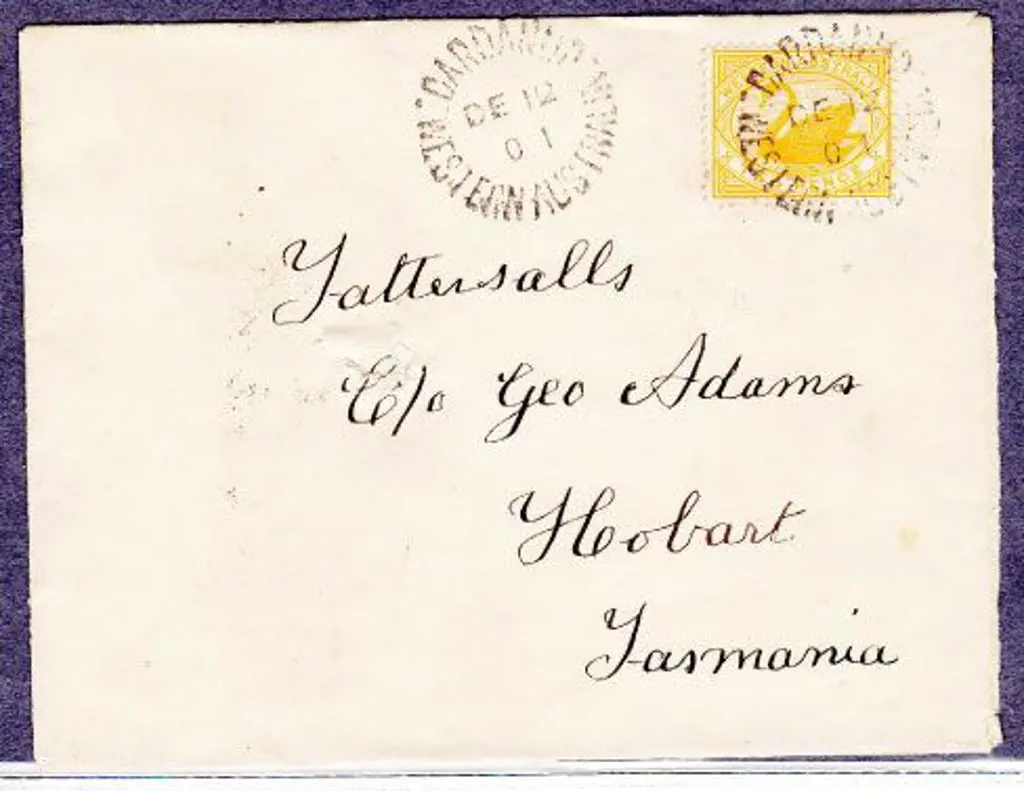 CARDANUP
DE 12
01
WESTERN AUSTRALIA
CARDANUP
DE 1
0
WESTERN AUS
PENCE
Tattersalls
C/o Geo Adams
Hobart
Tasmania